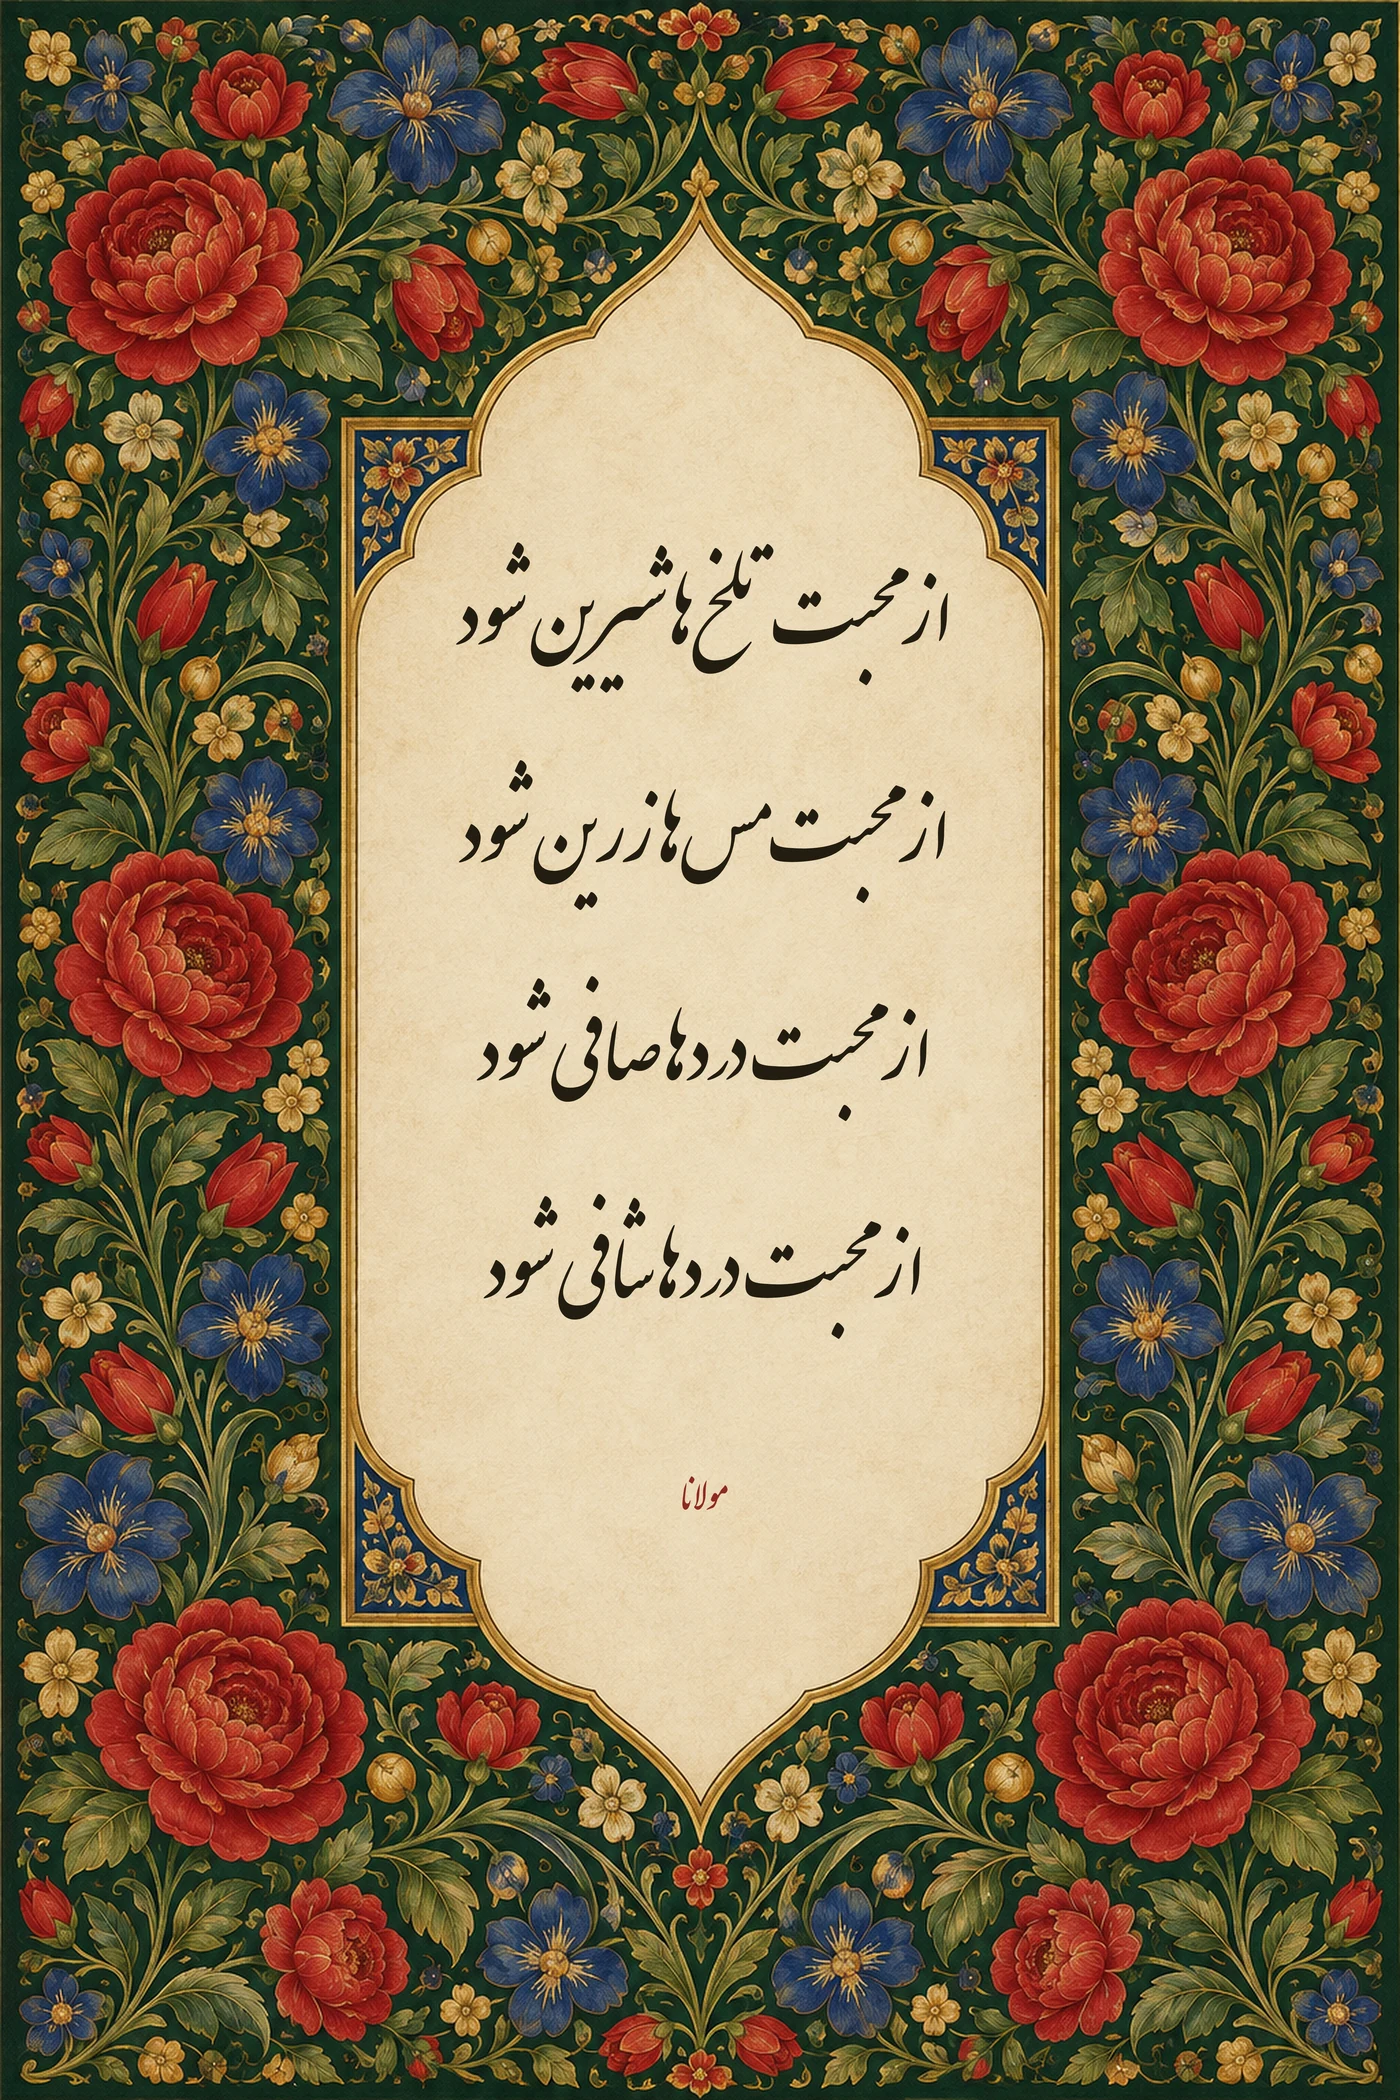 از محبت تلخ ها شیرین شود
از محبت مس ها زرین شود
از محبت دردها صافی شود
از محبت دردها شافی شود
مولانا